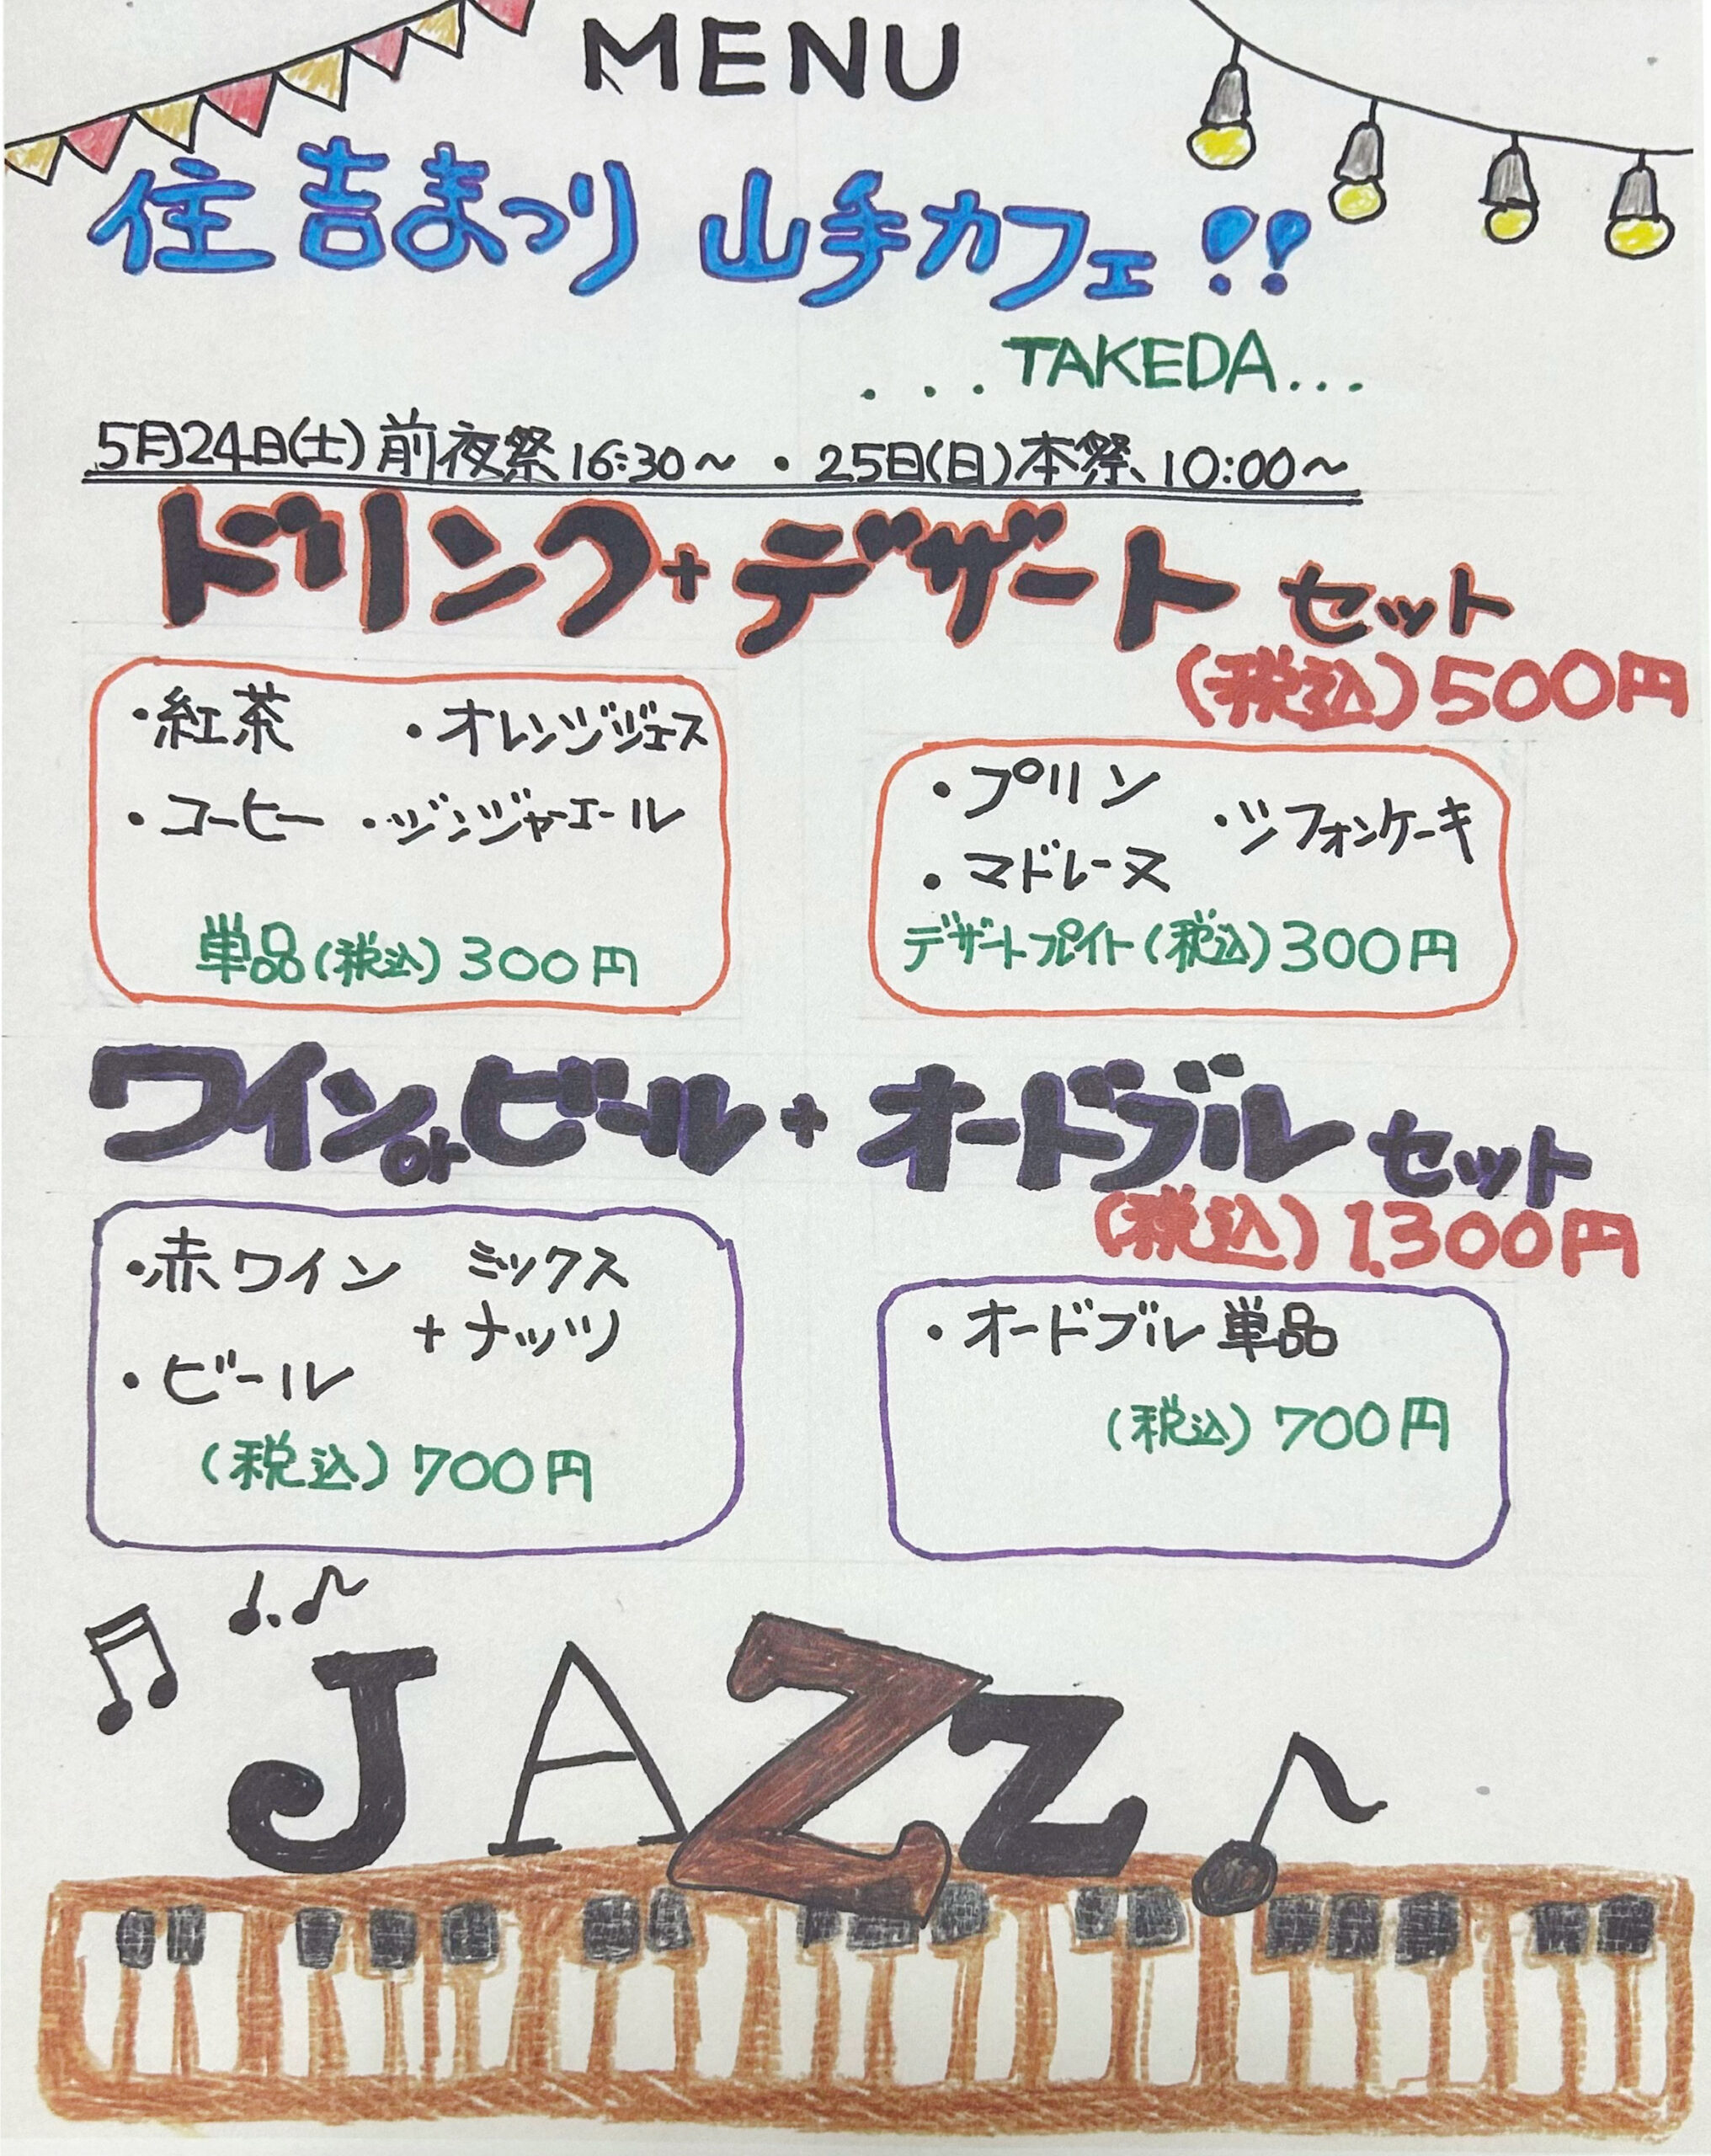 MENU
住吉まつり 山手カフェ!!
...TAKEDA...
5月24日(土)前夜祭16:30〜・25日(日)本祭10:00〜
ドリンク+デザートセット
(税込)500円
・紅茶 ・オレンジジュース
・コーヒー ・ジンジャーエール
単品(税込)300円
・プリン ・シフォンケーキ
・マドレーヌ
デザートプレイト(税込)300円
ワインorビール+オードブルセット
(税込)1,300円
・赤ワイン ミックス
+ナッツ
・ビール
(税込)700円
・オードブル単品
(税込)700円
JAZZ